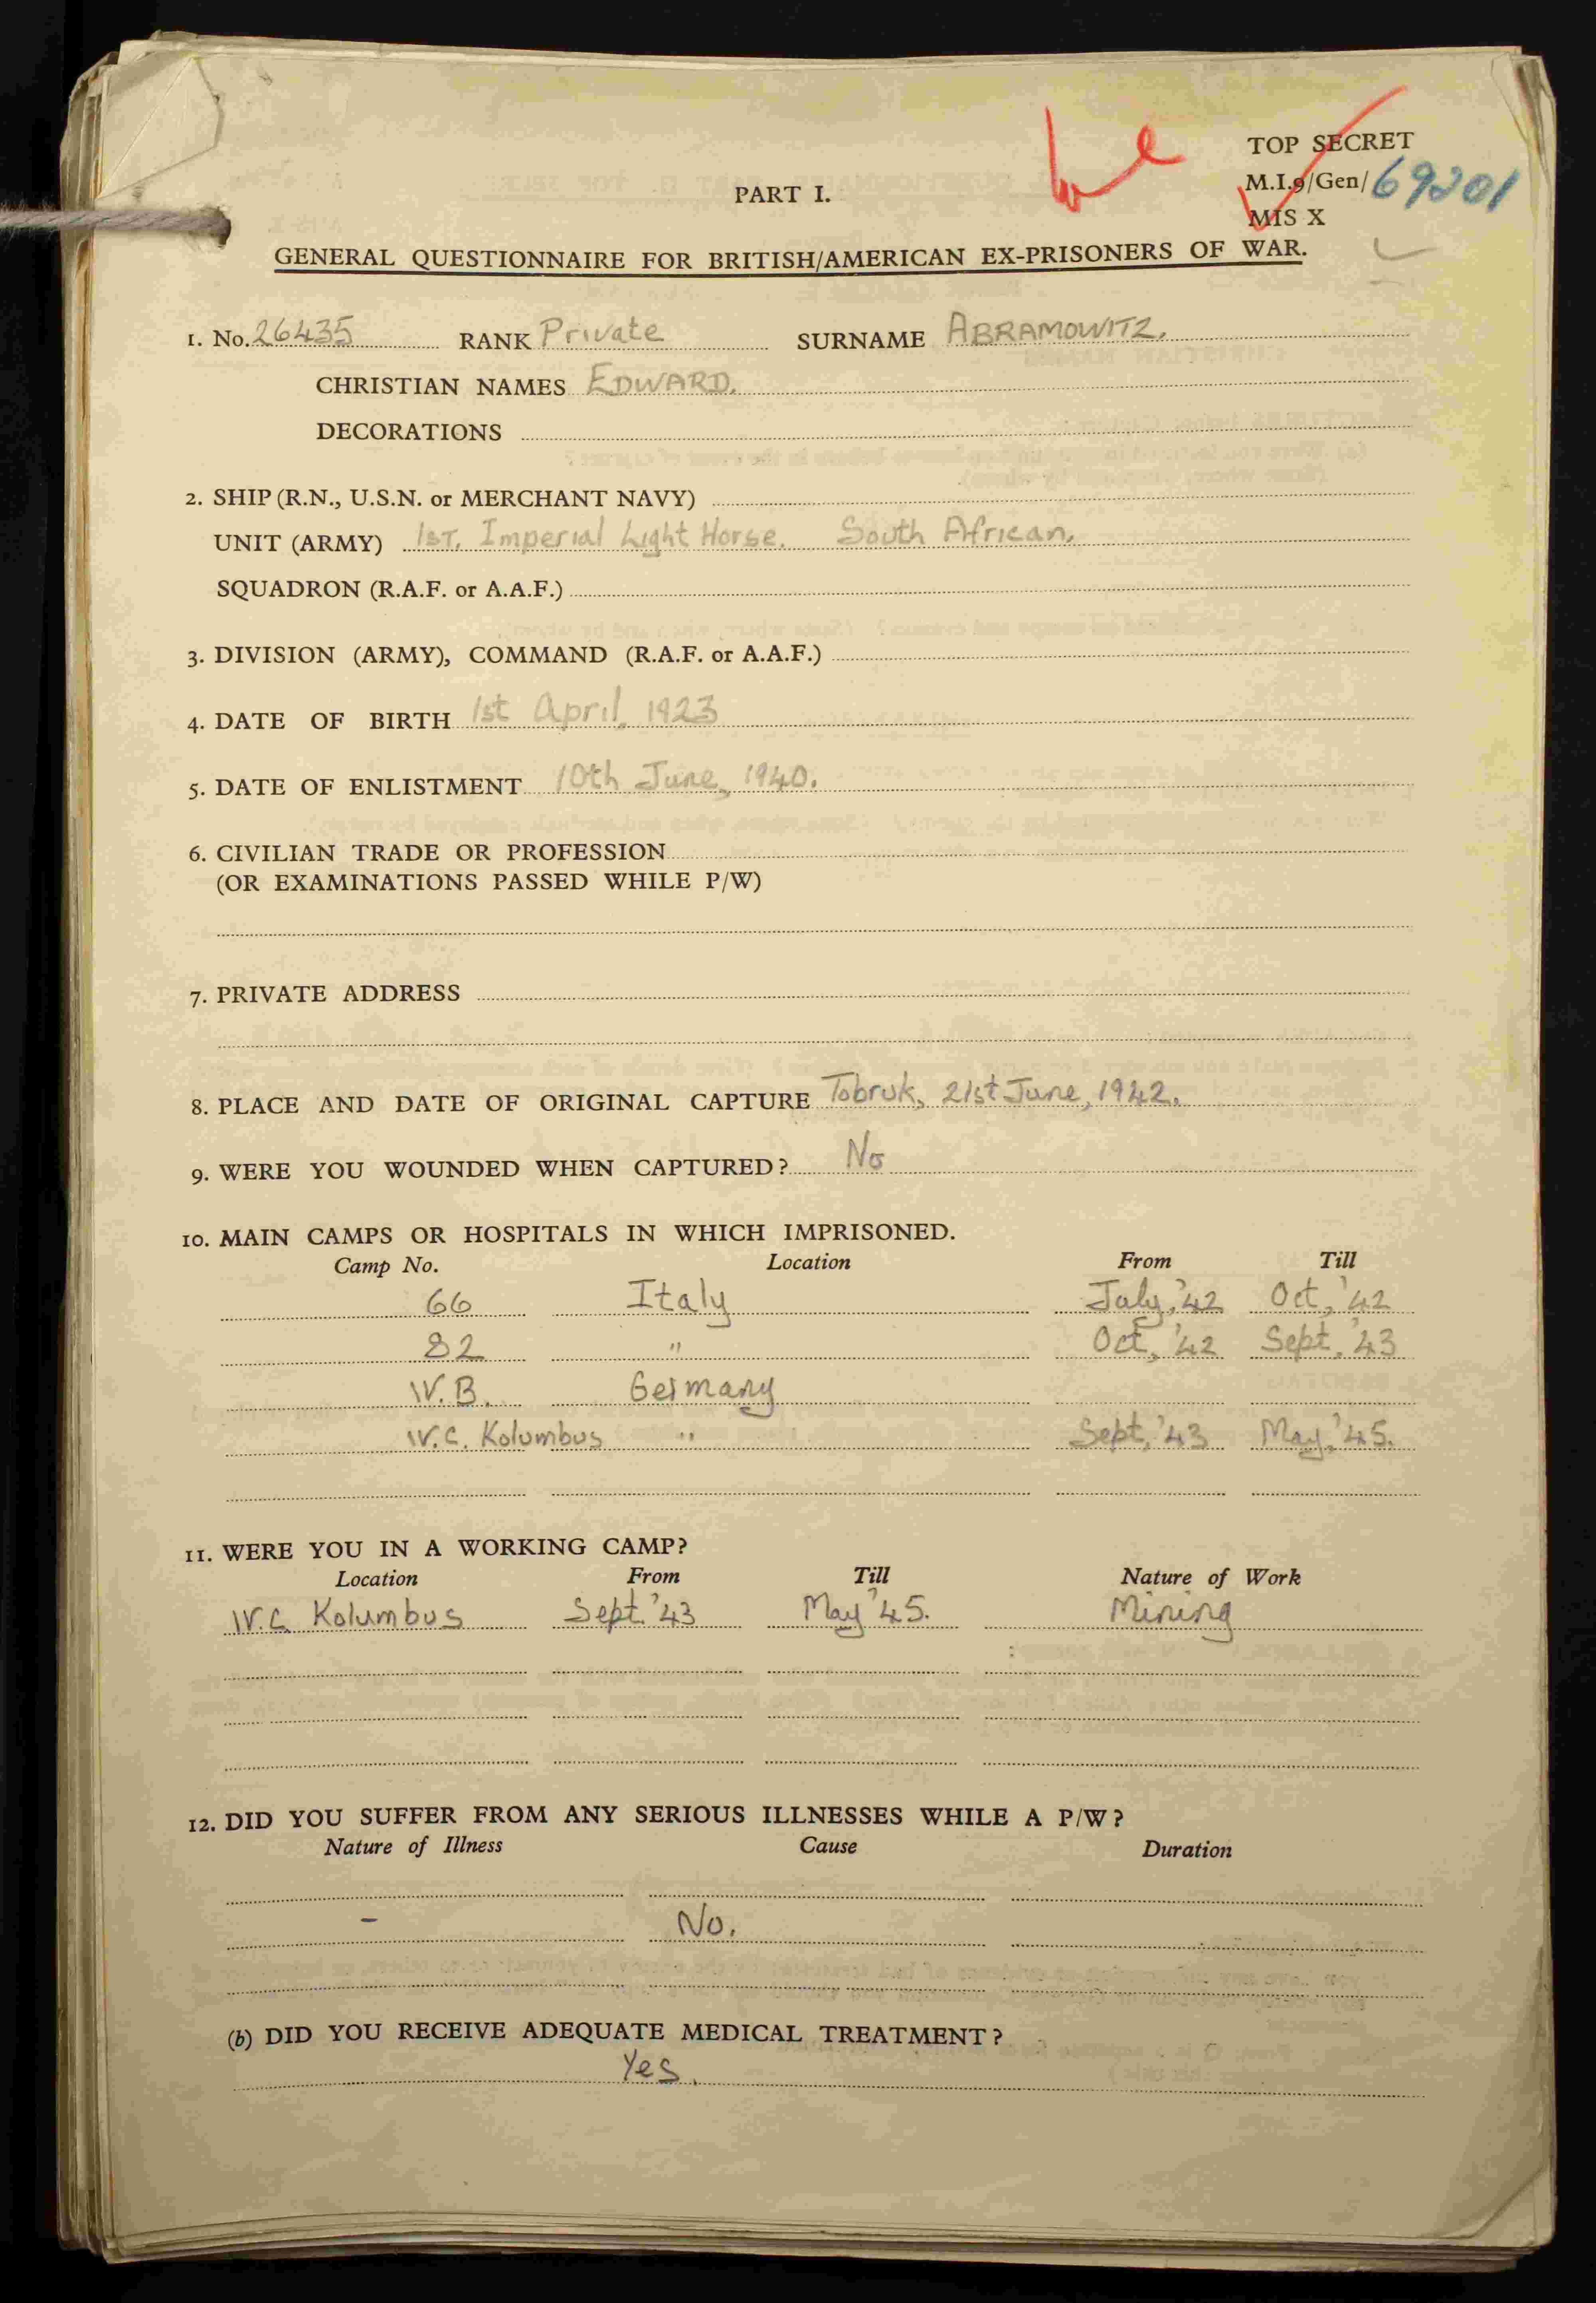 TOP SECRET
PART I.
M.I.9/Gen/ 69201
MIS X
GENERAL QUESTIONNAIRE FOR BRITISH/AMERICAN EX-PRISONERS OF WAR.
1. No. 26435 RANK Private SURNAME ABRAMOWITZ.
CHRISTIAN NAMES EDWARD.
DECORATIONS
2. SHIP (R.N., U.S.N. or MERCHANT NAVY)
UNIT (ARMY) 1ST. Imperial Light Horse. South African.
SQUADRON (R.A.F. or A.A.F.)
3. DIVISION (ARMY), COMMAND (R.A.F. or A.A.F.)
4. DATE OF BIRTH 1st April, 1923
5. DATE OF ENLISTMENT 10th June, 1940.
6. CIVILIAN TRADE OR PROFESSION
(OR EXAMINATIONS PASSED WHILE P/W)
7. PRIVATE ADDRESS
8. PLACE AND DATE OF ORIGINAL CAPTURE Tobruk, 21st June, 1942.
9. WERE YOU WOUNDED WHEN CAPTURED? No
10. MAIN CAMPS OR HOSPITALS IN WHICH IMPRISONED.
Camp No. Location From Till
66 Italy July,'42 Oct,'42
82 " Oct,'42 Sept.'43
IV.B. Germany
IV.C. Kolumbus " Sept,'43 May,'45.
11. WERE YOU IN A WORKING CAMP?
Location From Till Nature of Work
IV.C Kolumbus Sept.'43 May '45. Mining
12. DID YOU SUFFER FROM ANY SERIOUS ILLNESSES WHILE A P/W?
Nature of Illness Cause Duration
- No.
(b) DID YOU RECEIVE ADEQUATE MEDICAL TREATMENT?
Yes.